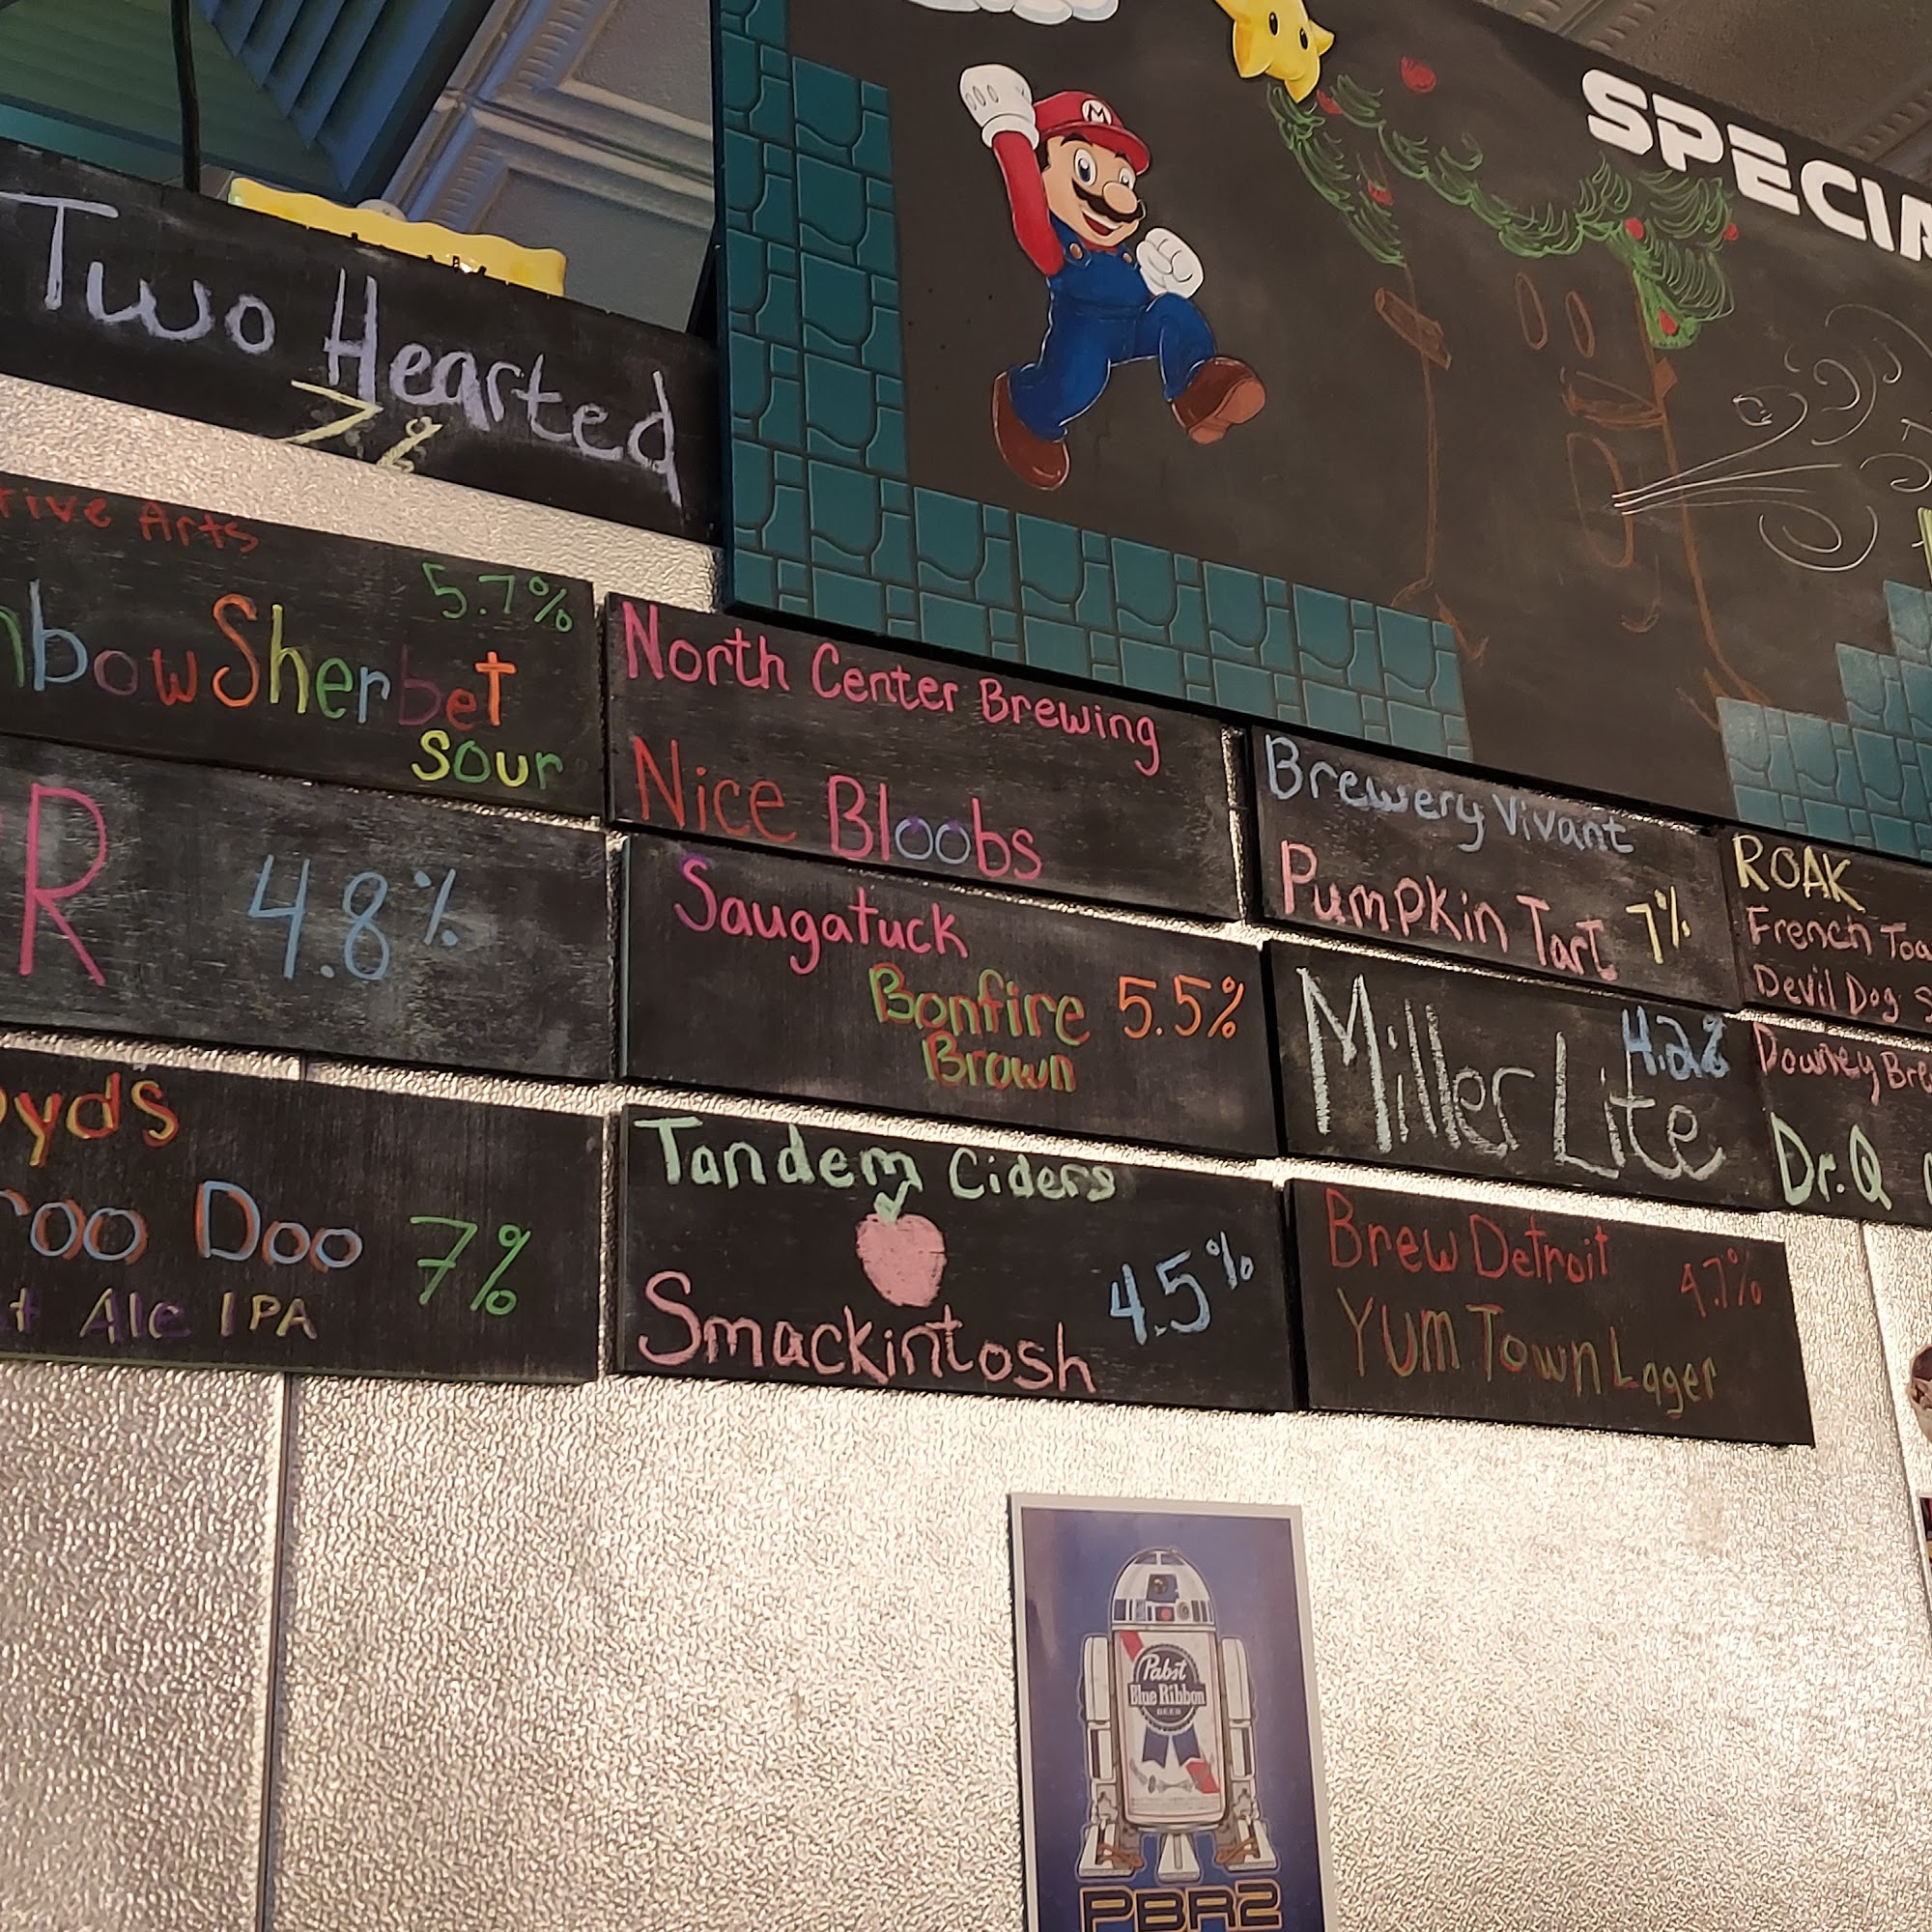 SPECIA
Two Hearted
7%
tive Arts
5.7%
nbow Sherbet
sour
R 4.8%
oyds
roo Doo 7%
t Ale IPA
North Center Brewing
Nice Bloobs
Saugatuck
Bonfire 5.5%
Brown
Tandem Ciders
4.5%
Smackintosh
Brewery Vivant
Pumpkin Tart 7%
Miller Lite 4.2%
Brew Detroit
4.7%
Yum Town Lager
ROAK
French Toa
Devil Dog S
Downey Bre
Dr. Q
M
Pabst
Blue Ribbon
BEER
PBR2